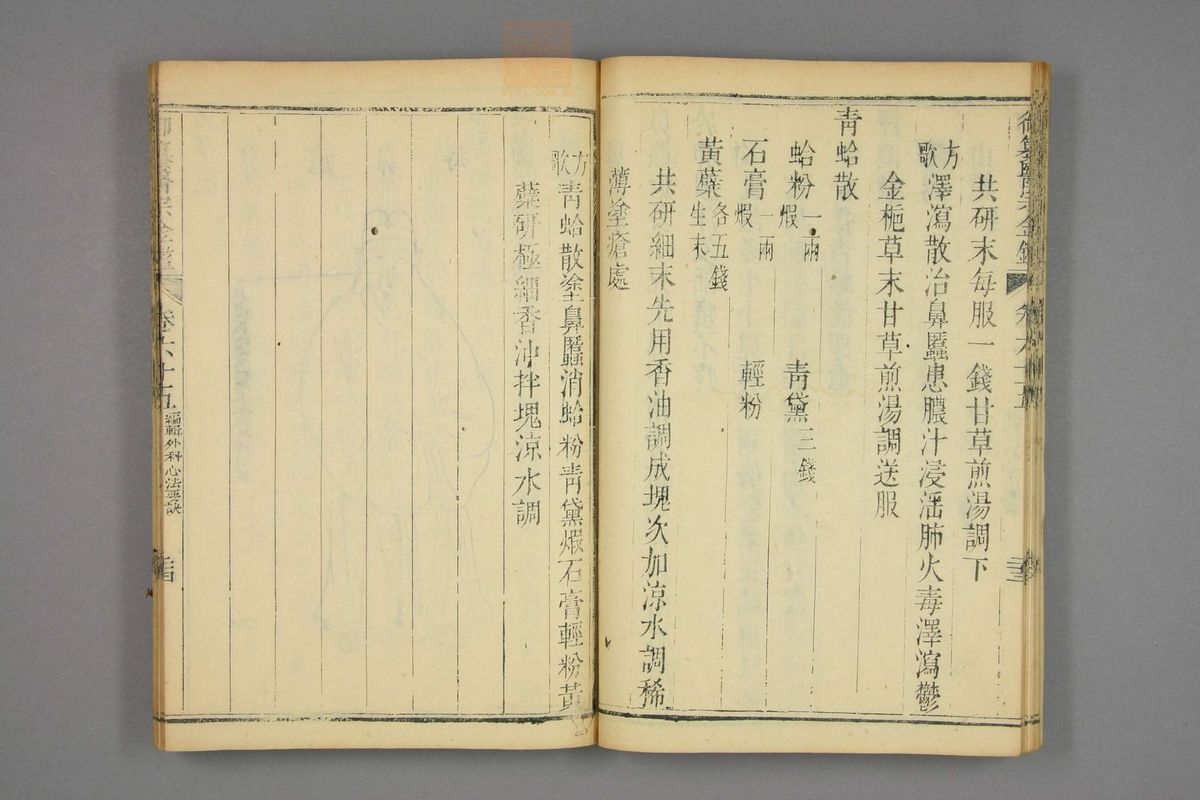 共研末每服一錢甘草煎湯調下
方歌 澤瀉散治鼻䘌患膿汁浸淫肺火毒澤瀉鬱
金梔草末甘草煎湯調送服
青蛤散
蛤粉 一兩煆 青黛 三錢
石膏 一兩煆 輕粉
黃蘗 各五錢生末
共研細末先用香油調成塊次加涼水調稀
薄塗瘡處
方歌 青蛤散塗鼻䘌消蛤粉青黛煆石膏輕粉黃
蘗研極細香油拌塊涼水調
御纂醫宗金鑑 卷六十五 編輯外科心法要訣 二十四